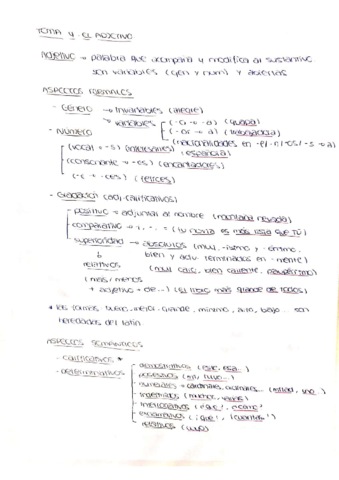 TEMA 4 EL ADJETIVO
Adjetivo → palabra que acompaña y modifica al sustantivo
son variables (gen y num) y
ASPECTOS FORMALES
- Género → Invariables
variables (-o → -a) (guapa)
(-or → a) (trabajadora)
(nacionalidades en -l/-n/-s → a)
(española)
- Número
(vocal + -s) (interesantes)
(consonante → -es) (encantadores)
(-z → -ces) (felices)
- Gradación (adj. calificativos)
positivo → adjuntar al nombre (montaña nevada)
comparativo → +, -, = (tu novia es más lista que tú)
superioridad → absolutos (muy, -ísimo y -érrimo
bien y adv terminados en -mente)
relativos
(más / menos
+ adjetivo + de...) (el libro más grande de todos)
* las formas bueno, mejor, grande, mínimo, alto, bajo... son
heredadas del latín
ASPECTOS SEMÁNTICOS
- calificativos *
- determinativos
demostrativos (este, esa...
posesivos (mi, tuyo...
numerales → cardinales,
indefinidos (muchos, varios)
interrogativos (¿qué?, ¿cómo?
exclamativos (¡qué!, ¡cuántos!)
relativos (cuyo)